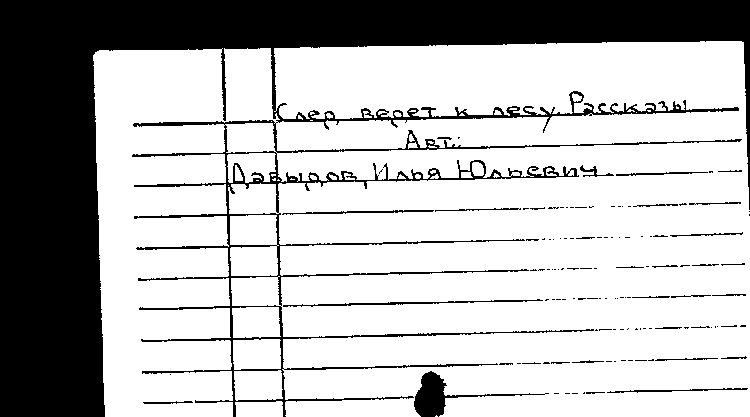 След ведет к лесу. Рассказы
Авт.:
Давыдов, Илья Юльевич.